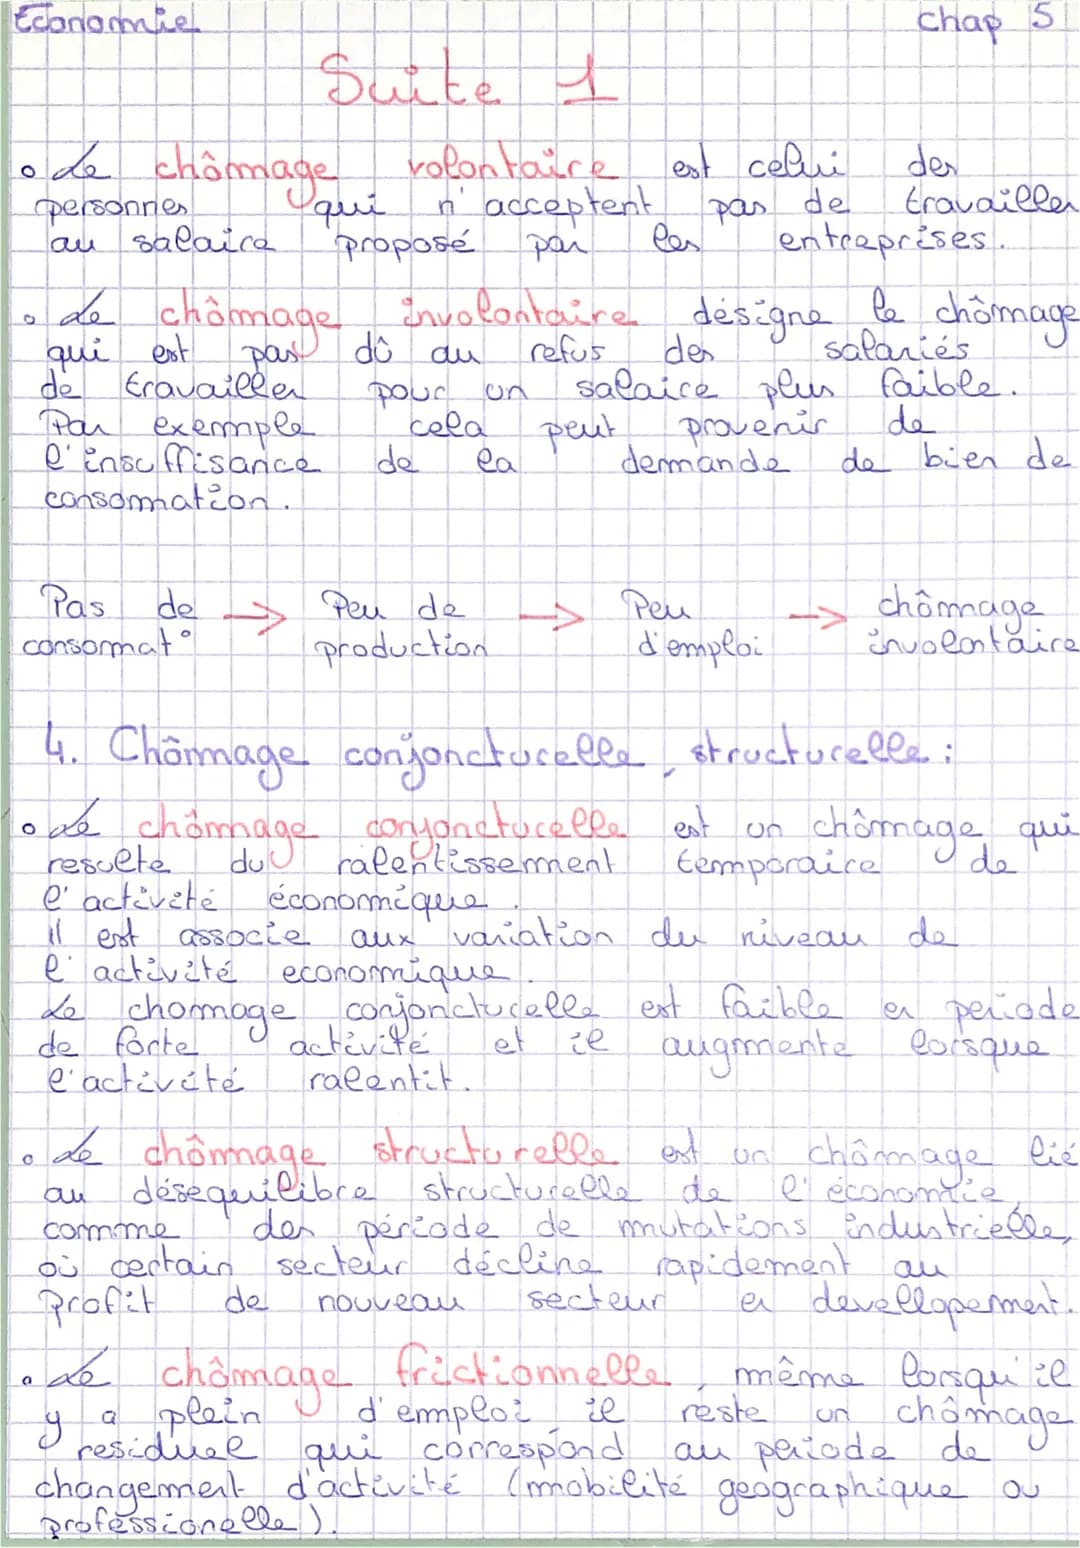 Economie Chap 5
Suite 1
o Le chômage volontaire est celui des
personnes qui n'acceptent pas de travailler
au salaire proposé par les entreprises.
o Le chômage involontaire désigne le chômage
qui est pas dû au refus des salariés
de travailler pour un salaire plus faible.
Par exemple cela peut provenir de
l'insuffisance de la demande de bien de
consommation.
Pas de → Peu de → Peu → chômage
consommat° production d'emploi involontaire
4. Chômage conjoncturelle, structurelle :
o Le chômage conjoncturelle est un chômage qui
resulte du ralentissement temporaire de
l'activité économique.
il est associe aux variation du niveau de
l'activité economique.
Le chomage conjoncturelle est faible en periode
de forte activité et il augmente lorsque
l'activité ralentit.
o Le chômage structurelle est un chômage lié
au désequilibre structurelle de l'économie,
comme des période de mutations industrielle,
où certain secteur décline rapidement au
profit de nouveau secteur en devellopement.
o Le chômage frictionnelle, même lorsqu'il
y a plein d'emploi il reste un chômage
residuel qui correspond au periode de
changement d'activité (mobilité geographique ou
professionelle).